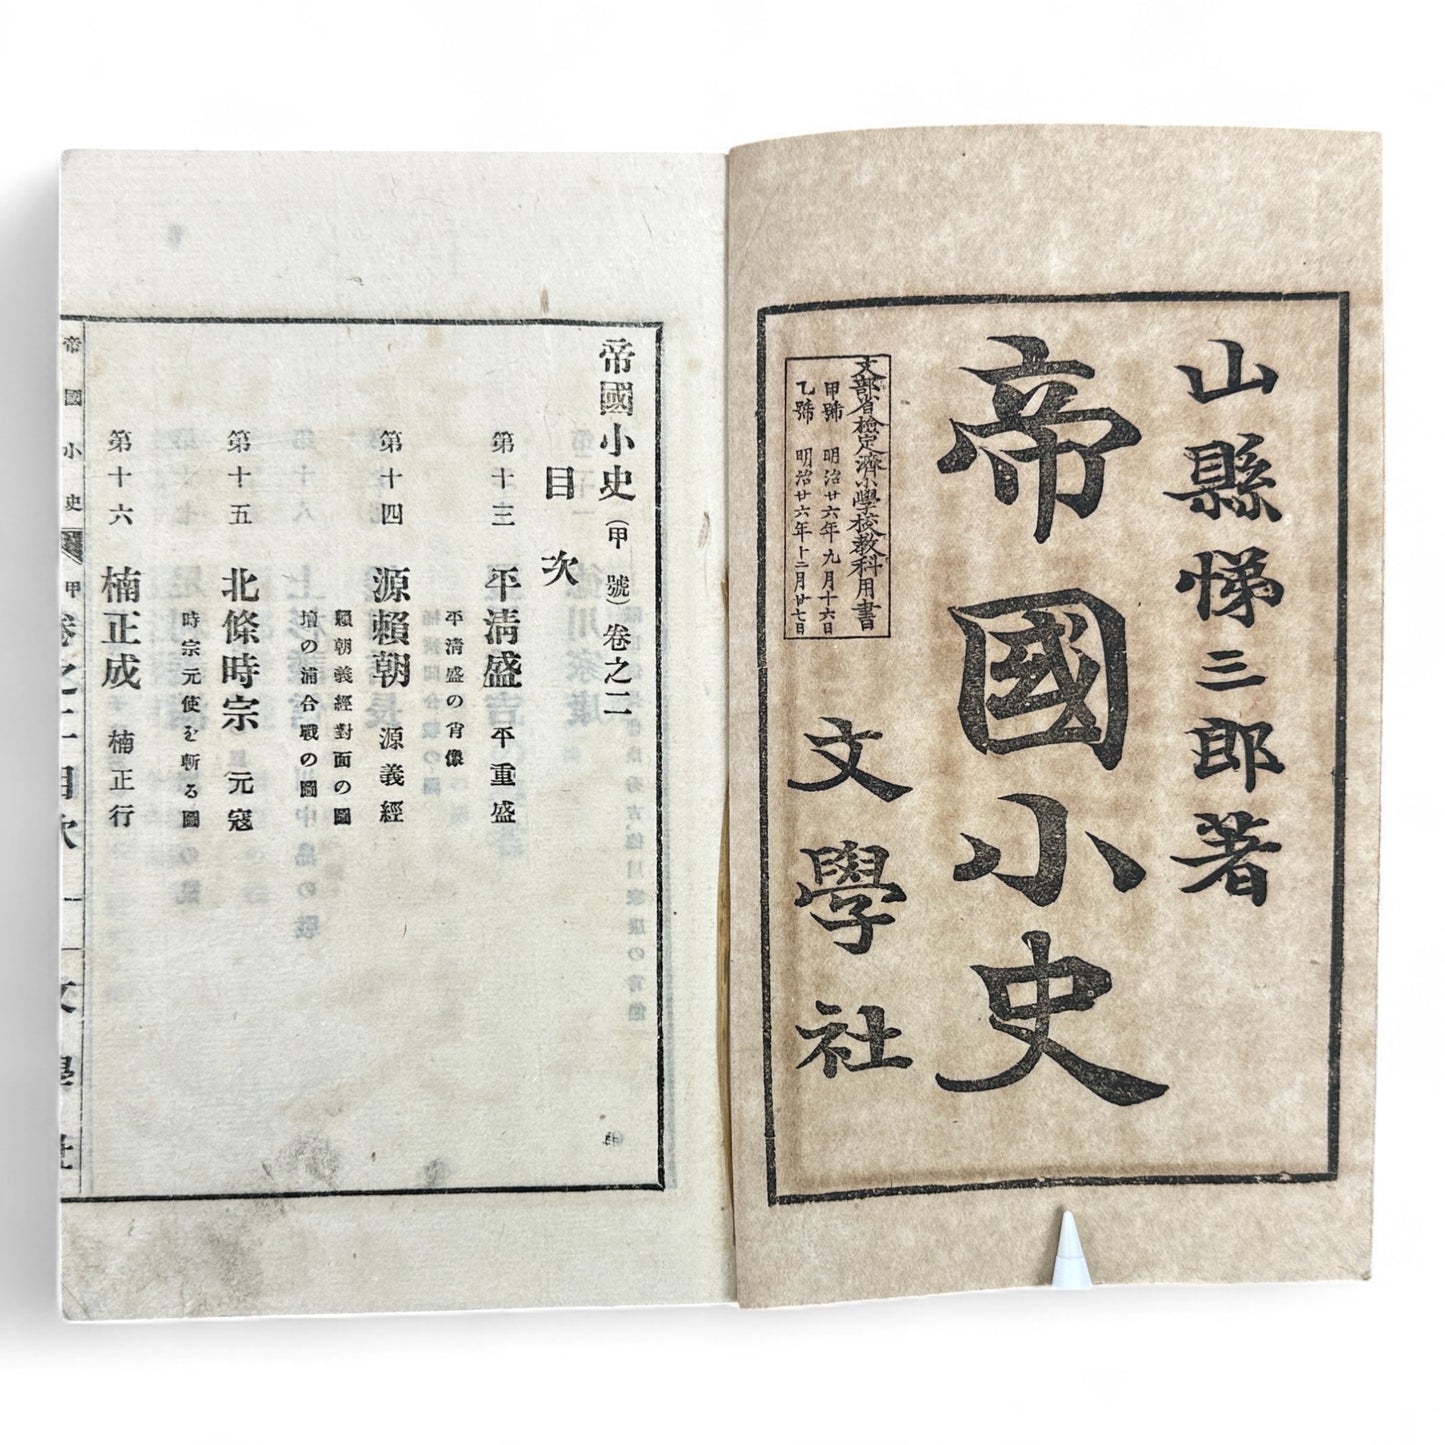 山縣悌三郎著
帝國小史
文部省檢定濟小學校教科用書
甲號 明治廿六年九月十六日
乙號 明治廿六年十二月廿七日
文學社
帝國小史(甲號)卷之二
目次
第十三 平清盛 平重盛
平清盛の肖像
第十四 源賴朝 源義經
賴朝義經對面の圖
壇の浦合戰の圖
第十五 北條時宗 元寇
時宗元使を斬る圖
第十六 楠正成 楠正行
帝國小史 甲卷之二目次 一 文學社